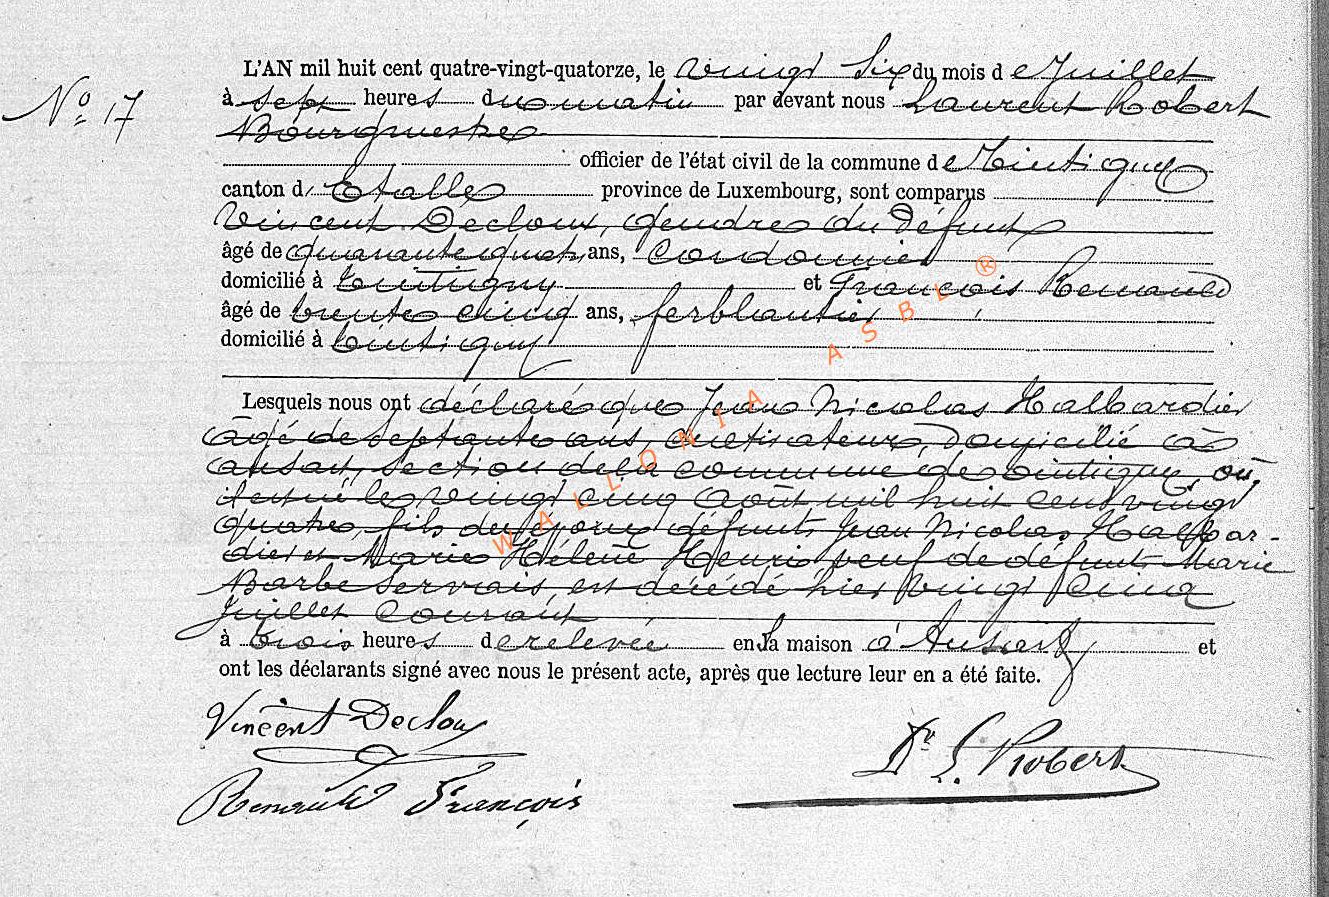 L'AN mil huit cent quatre-vingt-quatorze, le vingt six du mois de Juillet
N° 17
à sept heures du matin par devant nous Laurent Robert
Bourgmestre
officier de l'état civil de la commune de Tintigny
canton d'Etalle province de Luxembourg, sont comparus
Vincent Decloux, gendre du défunt
âgé de quarante quatre ans, Cordonnier
domicilié à Tintigny et François Renauld
âgé de trente cinq ans, ferblantier
domicilié à Tintigny
Lesquels nous ont déclaré que Jean Nicolas Halbardier
âgé de septante ans, cultivateur, domicilié à
Ansart, section de la commune de Tintigny, où
il est né le vingt cinq Août mil huit cent vingt
quatre, fils des époux défunts Jean Nicolas Halbar-
dier et Marie Hélène Henri veuf de défunte Marie
Barbe Servais, est décédé hier vingt cinq
Juillet courant
à trois heures de relevée en sa maison à Ansart et
ont les déclarants signé avec nous le présent acte, après que lecture leur en a été faite.
Vincent Decloux
Dr L. Robert
Renauld François
WALLONIA ASBL ®